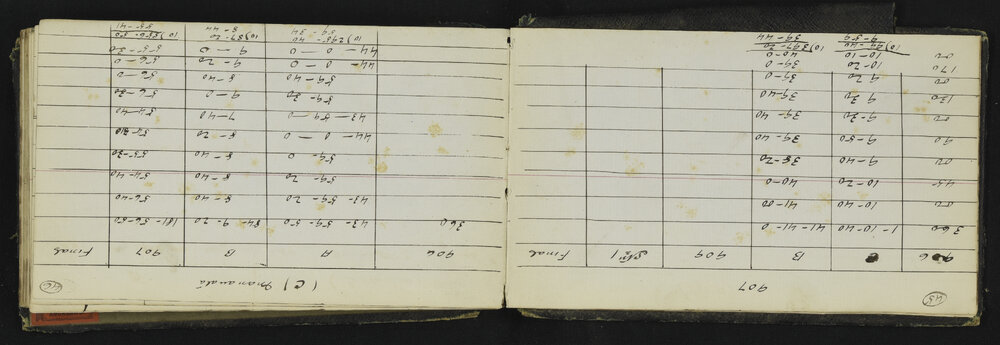 45
907
906 B 909 Stn 1 Final
360 1-10-40 41-41-0
00 10-40 41-00
45 10-20 40-0
00 9-40 38-20
90 9-50 39-40
00 9-30 39-40
130 9 30 39-40
00 9 20 39-0
170 10-20 39-0
00 10-10 40-0
10)98-40 10)397-20
9-59 39-44
(C) 46
906 A B 907 Final
360 43-59-50 84-9-20 181-56-50
43-59-20 8-40 56-40
59-20 8-40 54-40
59-0 8-40 55-30
44-0-0 8-20 55-20
43-59-0 7-40 54-40
59-30 9-0 56-30
59-40 8-40 56-0
44-0-0 9-20 56-0
44-0-0 9-0 55-30
10)295-40 10)87-20 10)556-50
59-34 8-44 55-41